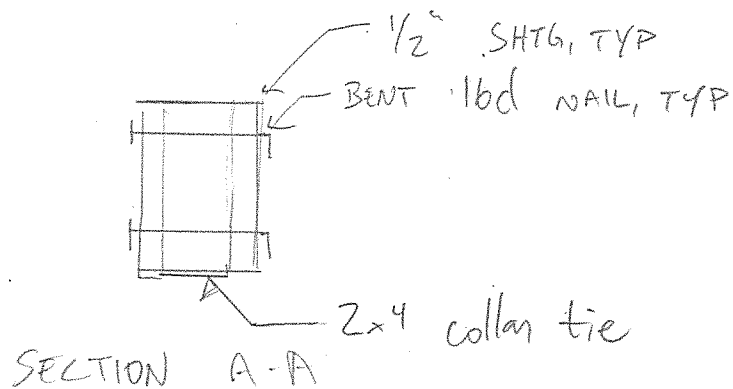 1/2" SHTG, TYP
BENT 16d NAIL, TYP
2x4 collar tie
SECTION A-A